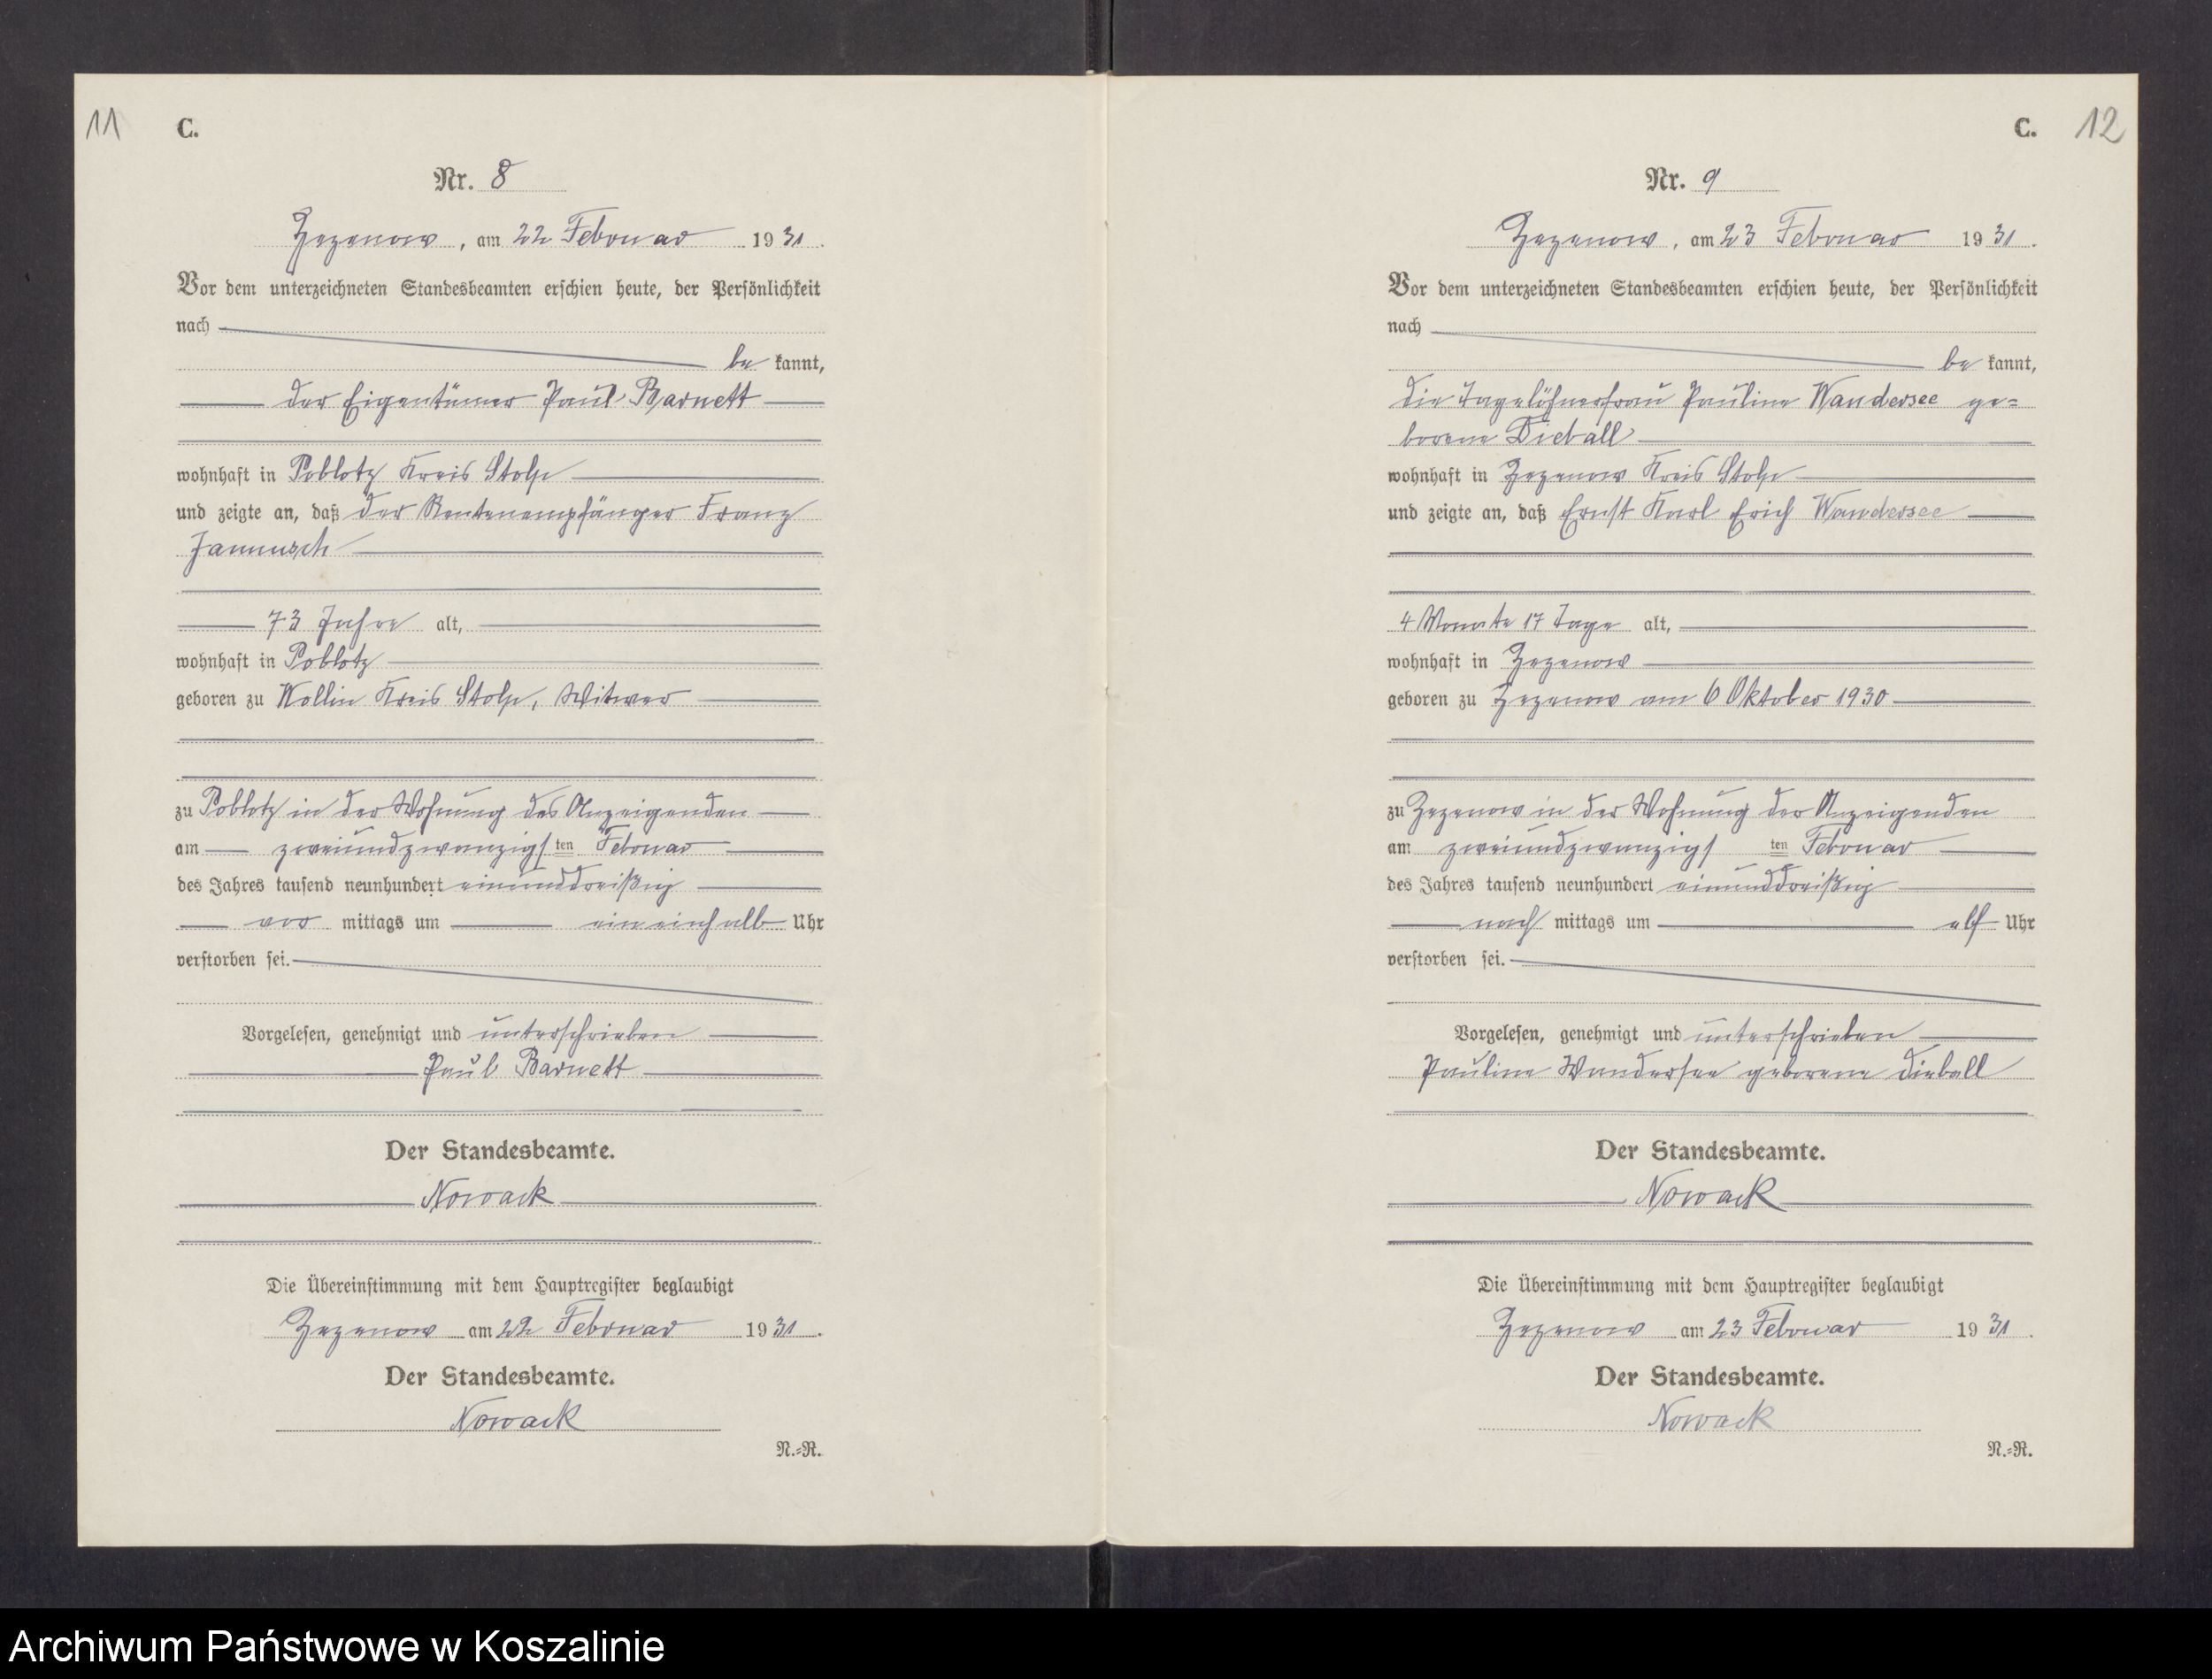 11
C.
Nr. 8
Zezenow, am 22 Februar 1931.
Vor dem unterzeichneten Standesbeamten erschien heute, der Persönlichkeit
nach
be kannt,
der Eigentümer Paul Barnett
wohnhaft in Poblotz Kreis Stolp
und zeigte an, daß der Rentenempfänger Franz
Jannusch
73 Jahre alt,
wohnhaft in Poblotz
geboren zu Wollin Kreis Stolp, Witwer
zu Poblotz in der Wohnung des Anzeigenden
am zweiundzwanzigsten Februar
des Jahres tausend neunhundert einunddreißig
vor mittags um ein einhalb Uhr
verstorben sei.
Vorgelesen, genehmigt und unterschrieben
Paul Barnett
Der Standesbeamte.
Nowack
Die Übereinstimmung mit dem Hauptregister beglaubigt
Zezenow am 22 Februar 1931.
Der Standesbeamte.
Nowack
N.=R.
C.
12
Nr. 9
Zezenow, am 23 Februar 1931.
Vor dem unterzeichneten Standesbeamten erschien heute, der Persönlichkeit
nach
be kannt,
die Tagelöhnerfrau Pauline Wandersee ge=
borene Dieball
wohnhaft in Zezenow Kreis Stolp
und zeigte an, daß Ernst Karl Erich Wandersee
4 Monate 17 Tage alt,
wohnhaft in Zezenow
geboren zu Zezenow am 6 Oktober 1930
zu Zezenow in der Wohnung der Anzeigenden
am zweiundzwanzigsten Februar
des Jahres tausend neunhundert einunddreißig
nach mittags um elf Uhr
verstorben sei.
Vorgelesen, genehmigt und unterschrieben
Pauline Wandersee geborene Dieball
Der Standesbeamte.
Nowack
Die Übereinstimmung mit dem Hauptregister beglaubigt
Zezenow am 23 Februar 1931.
Der Standesbeamte.
Nowack
N.=R.
Archiwum Państwowe w Koszalinie